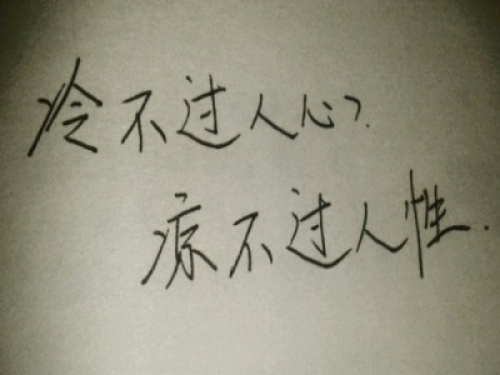 冷不过人心?
凉不过人性.